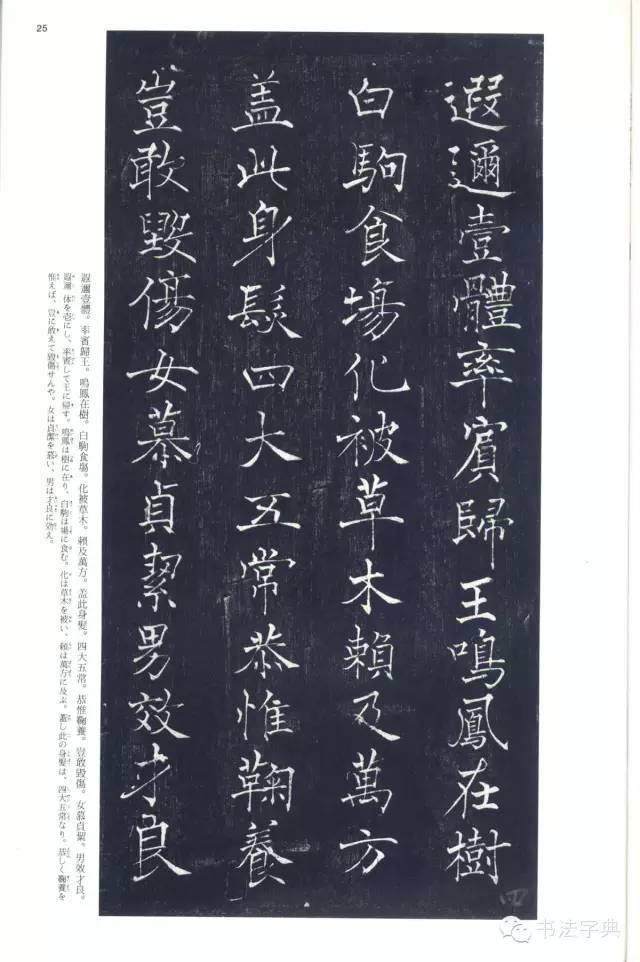 25
遐邇壹體率賓歸王鳴鳳在樹
白駒食場化被草木賴及萬方
盖此身髮四大五常恭惟鞠養
豈敢毀傷女慕貞絜男效才良
四
遐邇壹體。率賓歸王。鳴鳳在樹。白駒食場。化被草木。賴及萬方。盖此身髮。四大五常。恭惟鞠養。豈敢毀傷。女慕貞絜。男效才良。
遐邇 体を壱にし、率賓して王に帰す。鳴鳳は樹に在り、白駒は場に食む。化は草木を被い、賴は萬方に及ぶ。蓋し此の身髮は、四大五常なり。恭しく鞠養を
惟えば、豈に敢えて毀傷せんや。女は貞潔を慕い、男は才良に効え。
书法字典